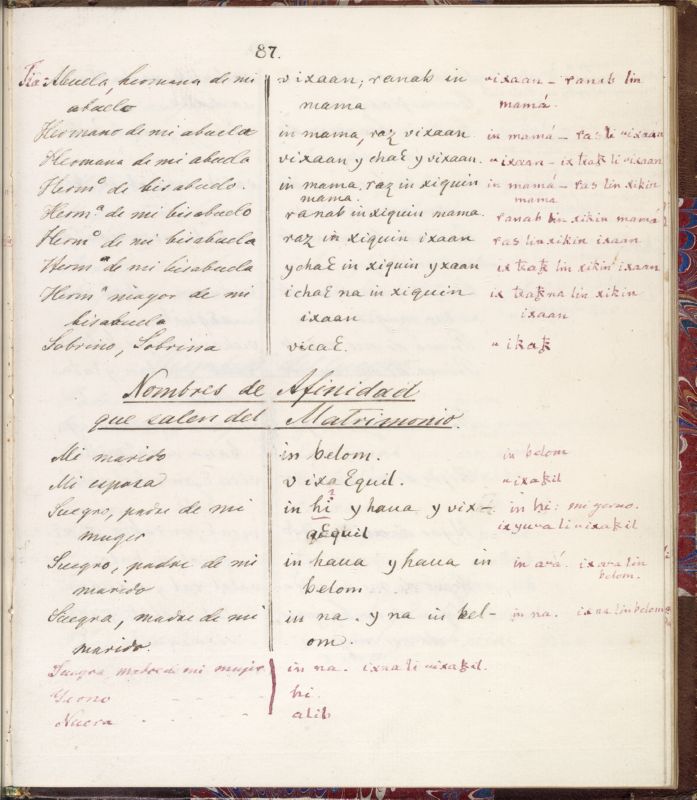 87.
Tia: Abuela, hermana de mi vixaan; ranab in vixaan – ranab lin
abuelo mama mamá.
Hermano de mi abuela in mama, raz vixaan in mamá – ras li vixaan
Hermana de mi abuela vixaan y chaꜫ y vixaan. vixaan – ix tꞩaꞣ li vixaan
Hermº de bisabuelo. in mama, raz in xiquin in mamá – ras lin xikin
mama. mama
Hermª de mi bisabuelo ranab in xiquin mama. ranab lin xikin mamá
Hermº de mi bisabuela raz in xiquin ixaan ras lin xikin ixaan
Hermª de mi bisabuela ychaꜫ in xiquin yxaan lin xikin ixaan
Hermª mayor de mi ichaꜫ na in xiquin lin xikin
bisabuela ixaan ixaan
Sobrino, Sobrina vicaꜫ. vikaꞣ
Nombres de Afinidad
que salen del Matrimonio.
Mi marido in belom. in belom
Mi esposa v ixaꜫquil. vixaꞣil
Suegro, padre de mi in hi y haua y vix- in hi: mi yerno.
?
muger aꜫquil
Suegro, padre de mi in haua y haua in in avá. ix ava lin
marido belom belom.
Suegra, madre de mi in na. y na in bel- in na. ix na lin belom
marido. om.
Suegra, madre de mi mujer in na. ixna li vixaꞣil.
Yerno hi.
Nuera - - - alib